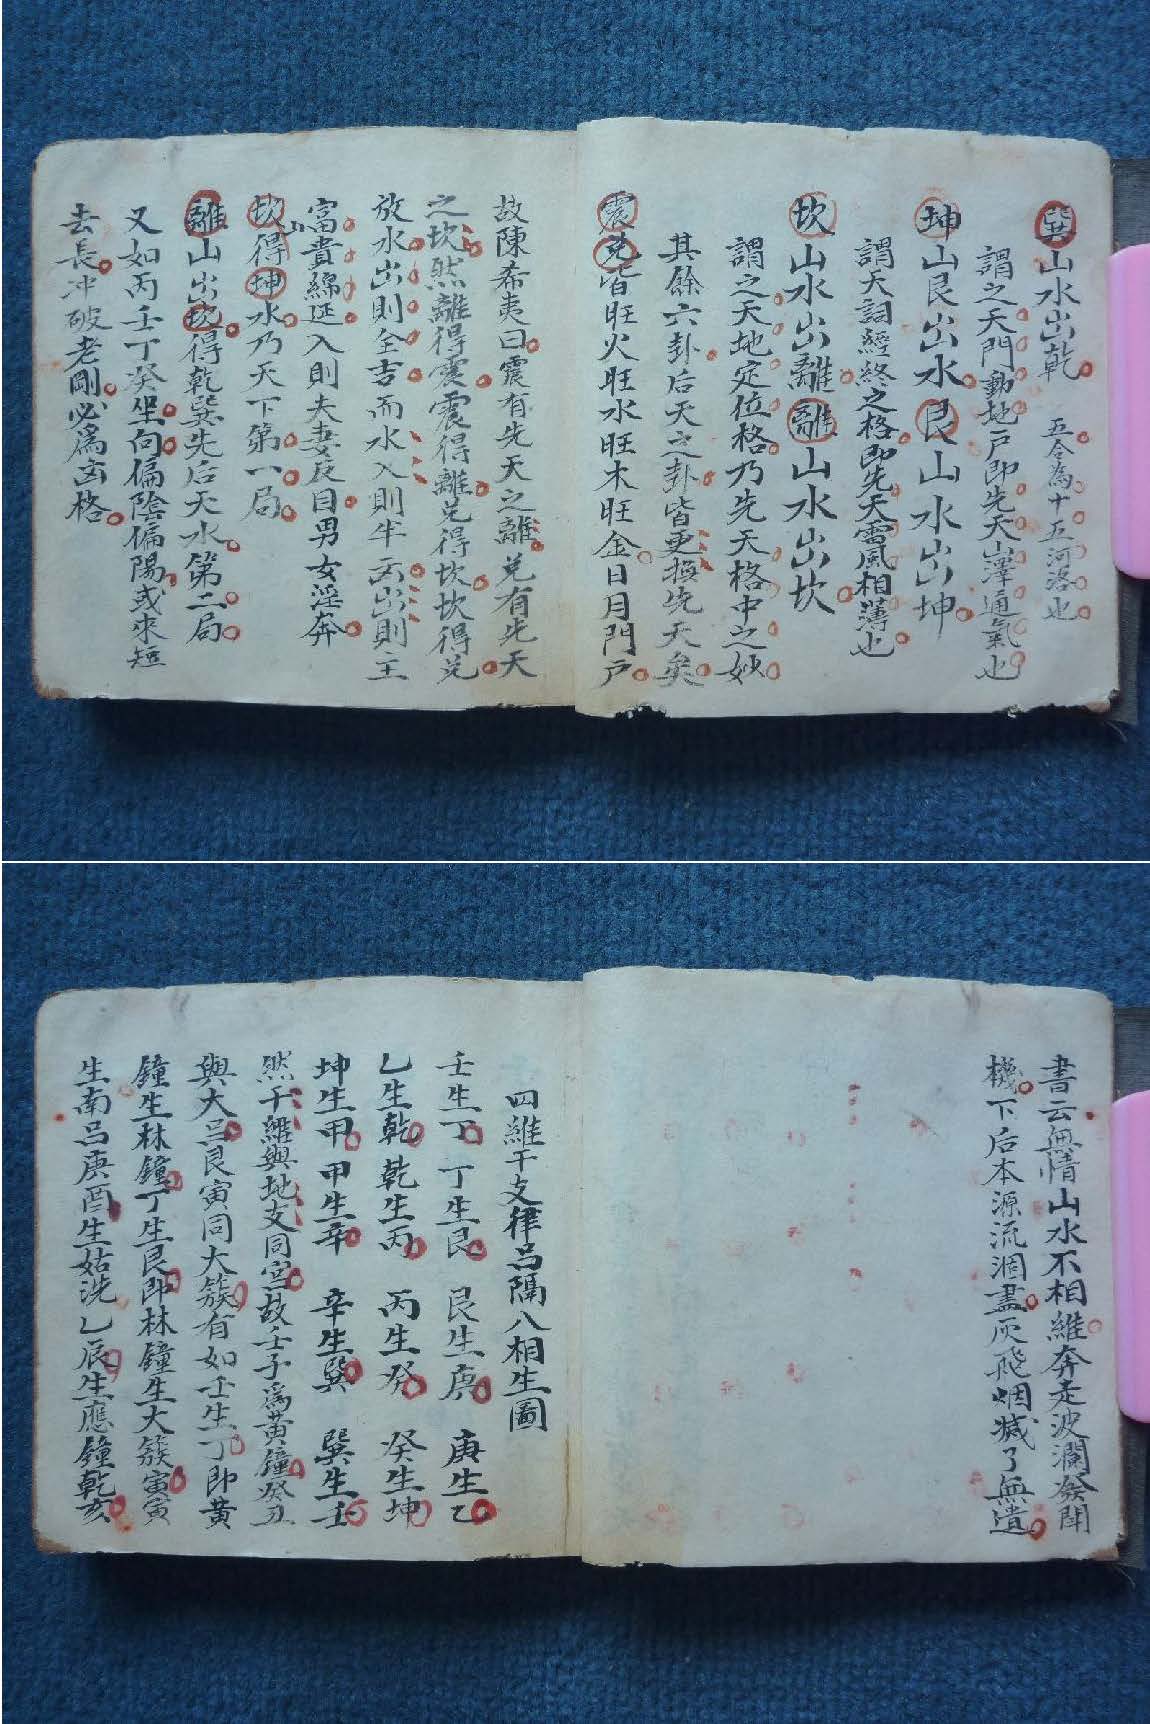 巽山水出乾　五令為十五河洛也
謂之天門動地戶即先天山澤通氣也
坤山艮出水艮山水出坤
謂天詞經終之格即先天雷風相薄也
坎山水出離離山水出坎
謂之天地定位格乃先天格中之妙
其餘六卦后天之卦皆更換先天矣
震兌皆旺火旺水旺木旺金日月門戶
故陳希夷曰震有先天之離兌有先天
之坎然離得震震得離兌得坎坎得兌
放水出則全吉而水入則半凶出則主
富貴綿延入則夫妻反目男女淫奔
坎山得坤水乃天下第一局
離山出坎得乾巽先后天水第二局
又如丙壬丁癸坐向偏陰偏陽或來短
去長冲破老剛必為凶格
書云無情山水不相維奔走波瀾發聞
機下后本源流涸盡灰飛烟滅了無遺
四維干支律呂隔八相生圖
壬生丁　丁生艮　艮生庚　庚生乙
乙生乾　乾生丙　丙生癸　癸生坤
坤生甲　甲生辛　辛生巽　巽生壬
然干維與地支同宮故壬子為黃鐘癸丑
與大呂艮寅同大簇有如壬生丁即黃
鐘生林鐘丁生艮即林鐘生大簇寅寅
生南呂庚酉生姑洗乙辰生應鐘乾亥